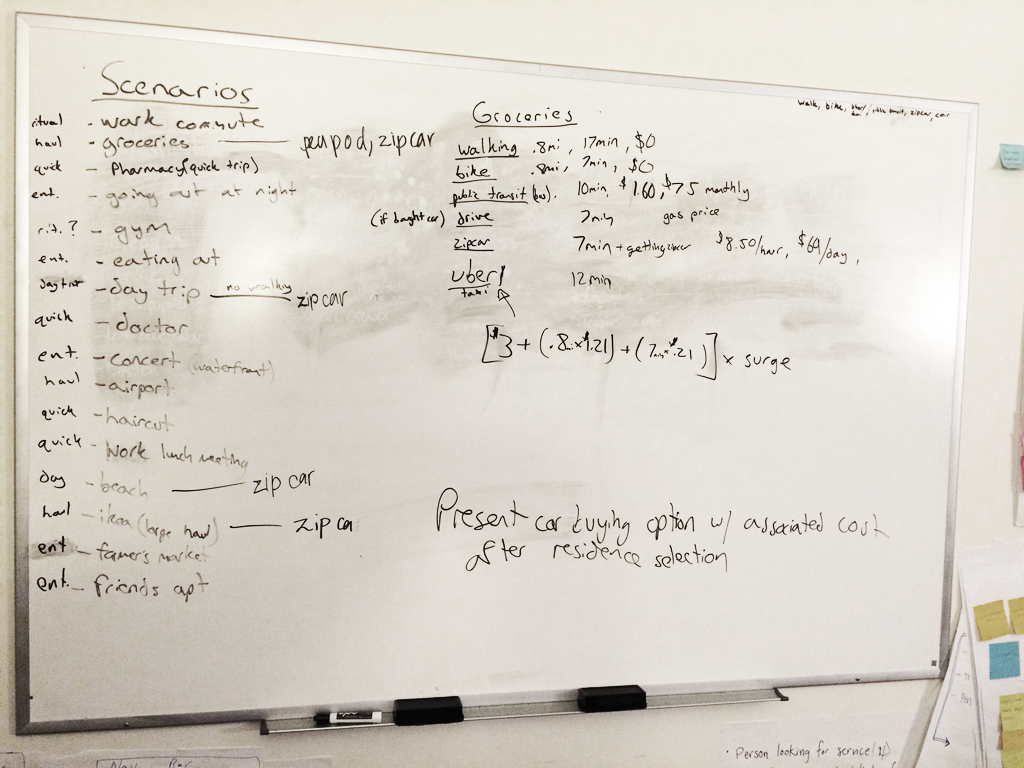 Scenarios
ritual - work commute
haul - groceries — peapod, zipcar
quick - Pharmacy (quick trip)
ent. - going out at night
rit.? - gym
ent. - eating out
day trip - day trip — no walking — zipcar
quick - doctor
ent. - concert (waterfront)
haul - airport
quick - haircut
quick - work lunch meeting
day - beach — zip car
haul - ikea (large haul) — zip ca
ent - farmer's market
ent. - friends apt
walk, bike, zipcar, car
Groceries
walking .8mi, 17min, $0
bike .8mi, 7min, $0
public transit (bus). 10min, $1.60, $75 monthly
(if bought car) drive 7min gas price
zipcar 7min + getting zipcar $8.50/hour, $69/day,
uber/ 12min
taxi
[$3 + (.8mi x $1.21) + (7min x $.21)] x surge
Present car buying option w/ associated cost
after residence selection
• Person looking for service(s)